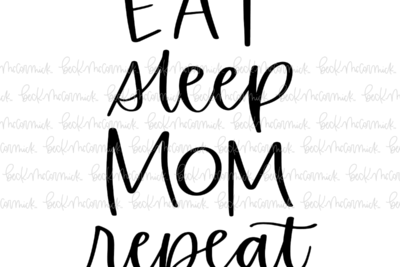 EAT
sleep
MOM
repeat